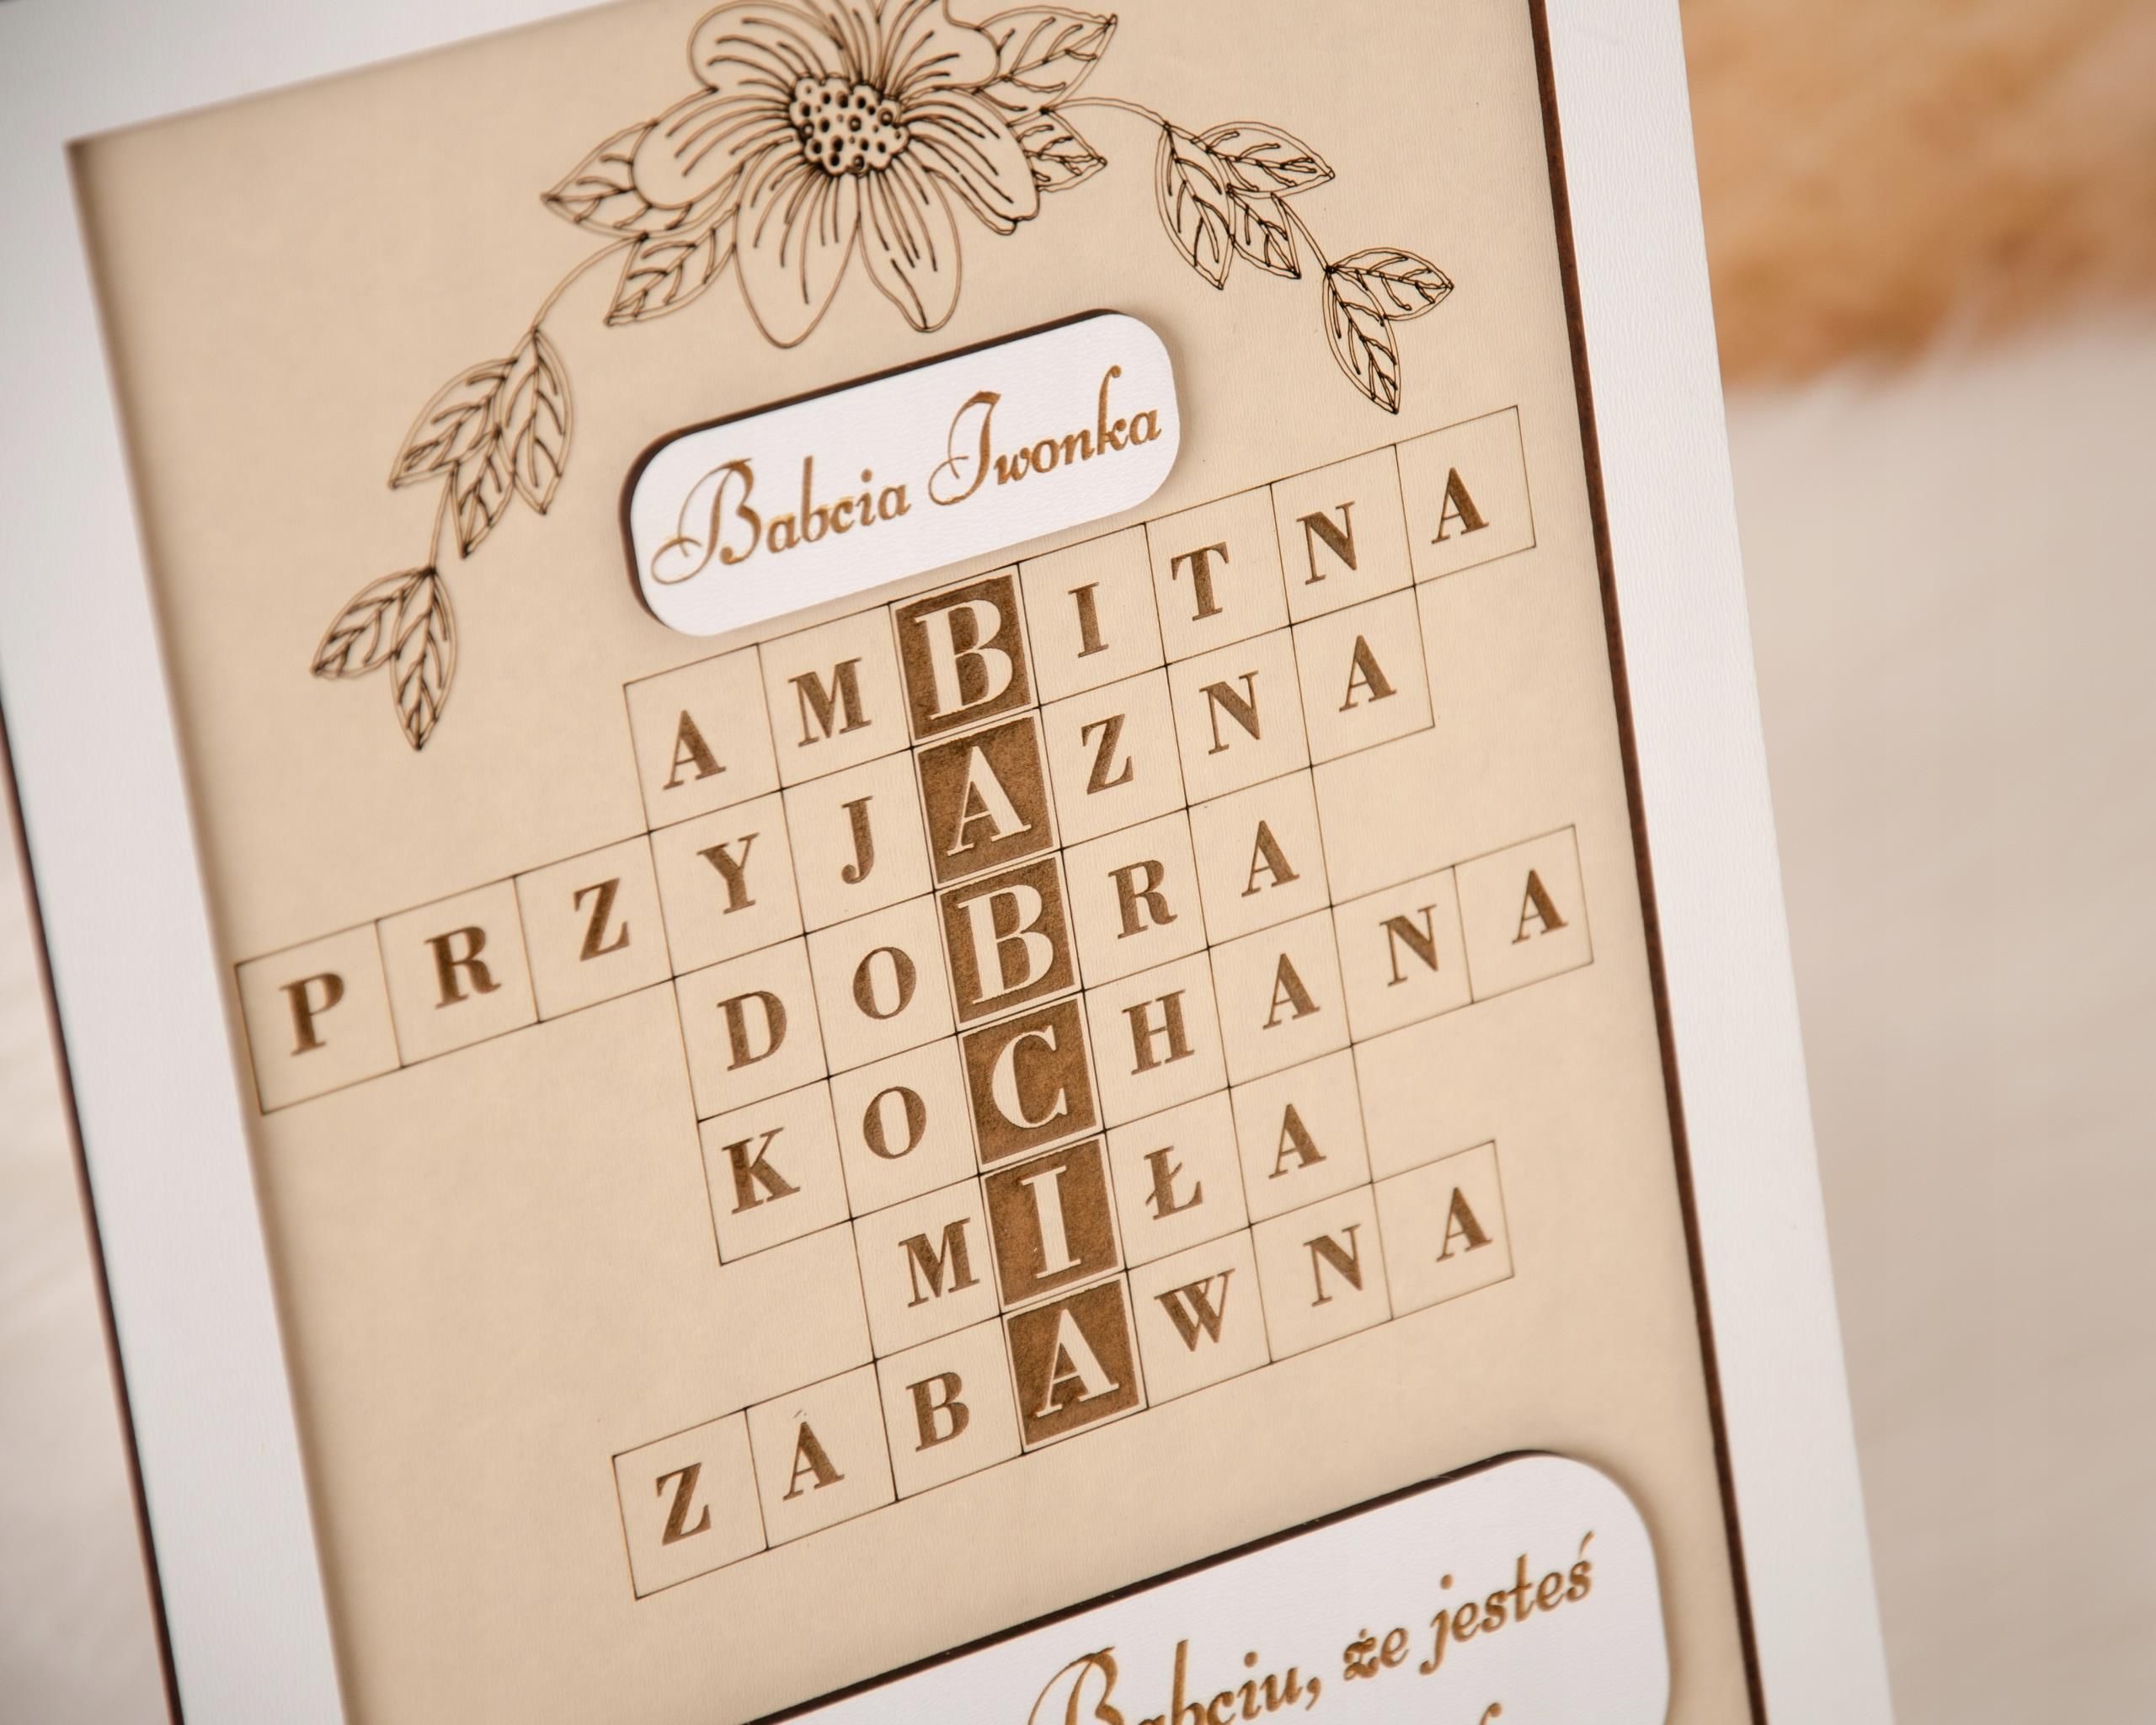 Babcia Iwonka
AMBITNA
PRZYJAZNA
DOBRA
KOCHANA
MIŁA
ZABAWNA
Babciu, że jesteś